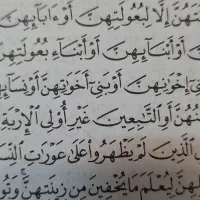 ـتَهُنَّ إِلَّا لِبُعُولَتِهِنَّ أَوْ ءَابَآئِهِنَّ
أَوْ أَبْنَآئِهِنَّ أَوْ أَبْنَآءِ بُعُولَتِهِنَّ
إِخْوَٰنِهِنَّ أَوْ بَنِىٓ أَخَوَٰتِهِنَّ أَوْ نِسَآئِهِـ
ـنُهُنَّ أَوِ ٱلتَّٰبِعِينَ غَيْرِ أُو۟لِى ٱلْإِرْبَةِ
ٱلَّذِينَ لَمْ يَظْهَرُوا۟ عَلَىٰ عَوْرَٰتِ ٱلنِّسَـ
ـلِهِنَّ لِيُعْلَمَ مَا يُخْفِينَ مِن زِينَتِهِنَّ ۚ وَتُو